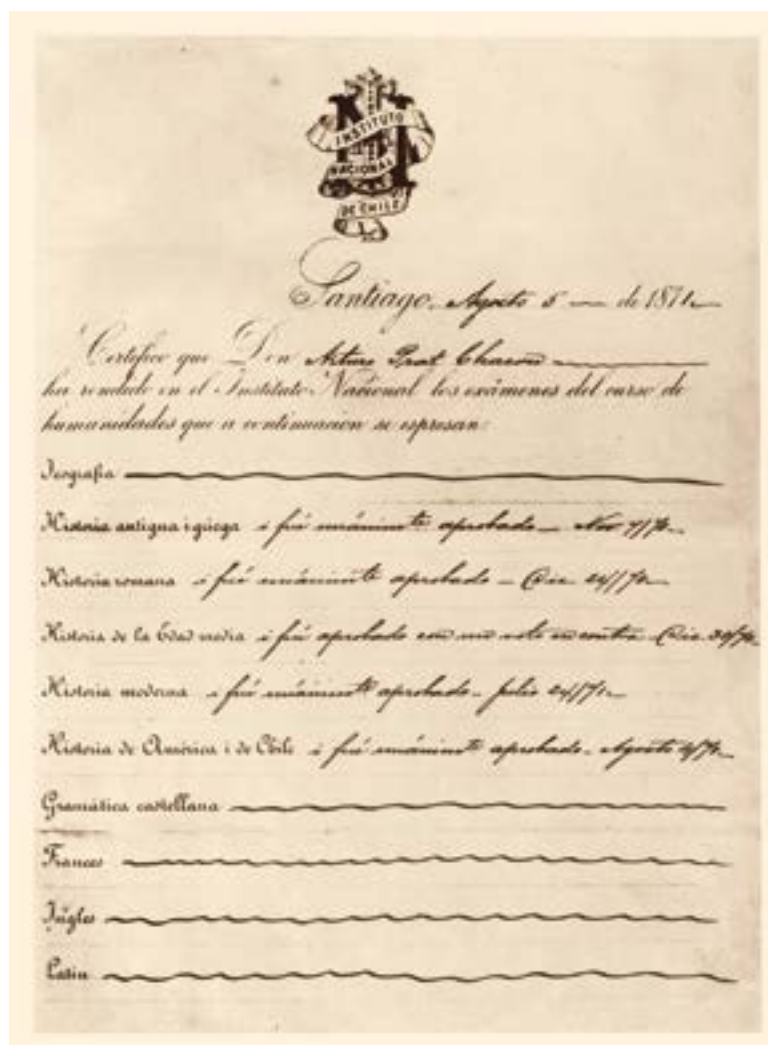 INSTITUTO
NACIONAL
DE CHILE
Santiago, Agosto 5 de 1871
Certifico que Don Arturo Prat Chacon
ha rendido en el Instituto Nacional los exámenes del curso de
humanidades que a continuacion se espresan:
Jeografia
Historia antigua i griega i fué unánimte aprobado Nov
Historia romana i fué unánimte aprobado Dic
Historia de la Edad media i fué aprobado con un voto en contra Dic
Historia moderna i fué unánimte aprobado Julio
Historia de América i de Chile i fué unánimte aprobado Agosto
Gramática castellana
Frances
Ingles
Latin